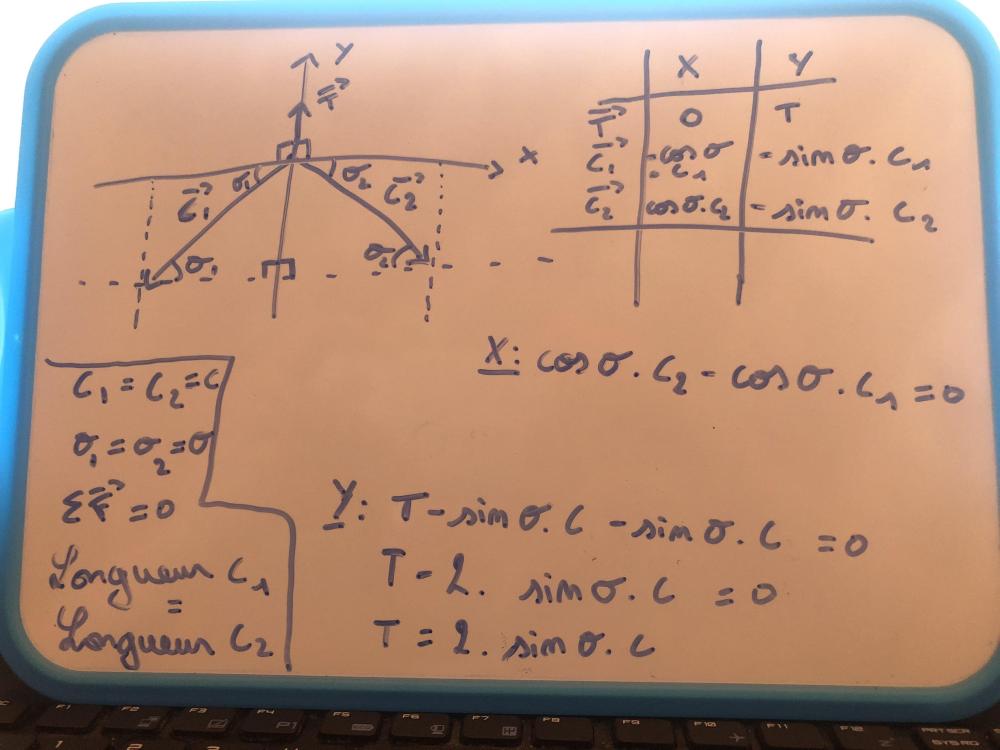 Y
T
X
σ₁ σ₂
C₁ C₂
σ₁ σ₂
X Y
T 0 T
C₁ -cos σ . C₁ - sin σ. C₁
C₂ cos σ. C₂ - sin σ. C₂
C₁ = C₂ = C
σ₁ = σ₂ = σ
ΣF = 0
Longueur C₁
=
Longueur C₂
X: cos σ. C₂ - cos σ. C₁ = 0
Y: T - sin σ. C - sin σ. C = 0
T - 2. sin σ. C = 0
T = 2. sin σ. C
F1 F2 F3 F4 F5 F6 F7 F8 F9 F10 F11 F12 PRT SCR
SYS RQ
1 2